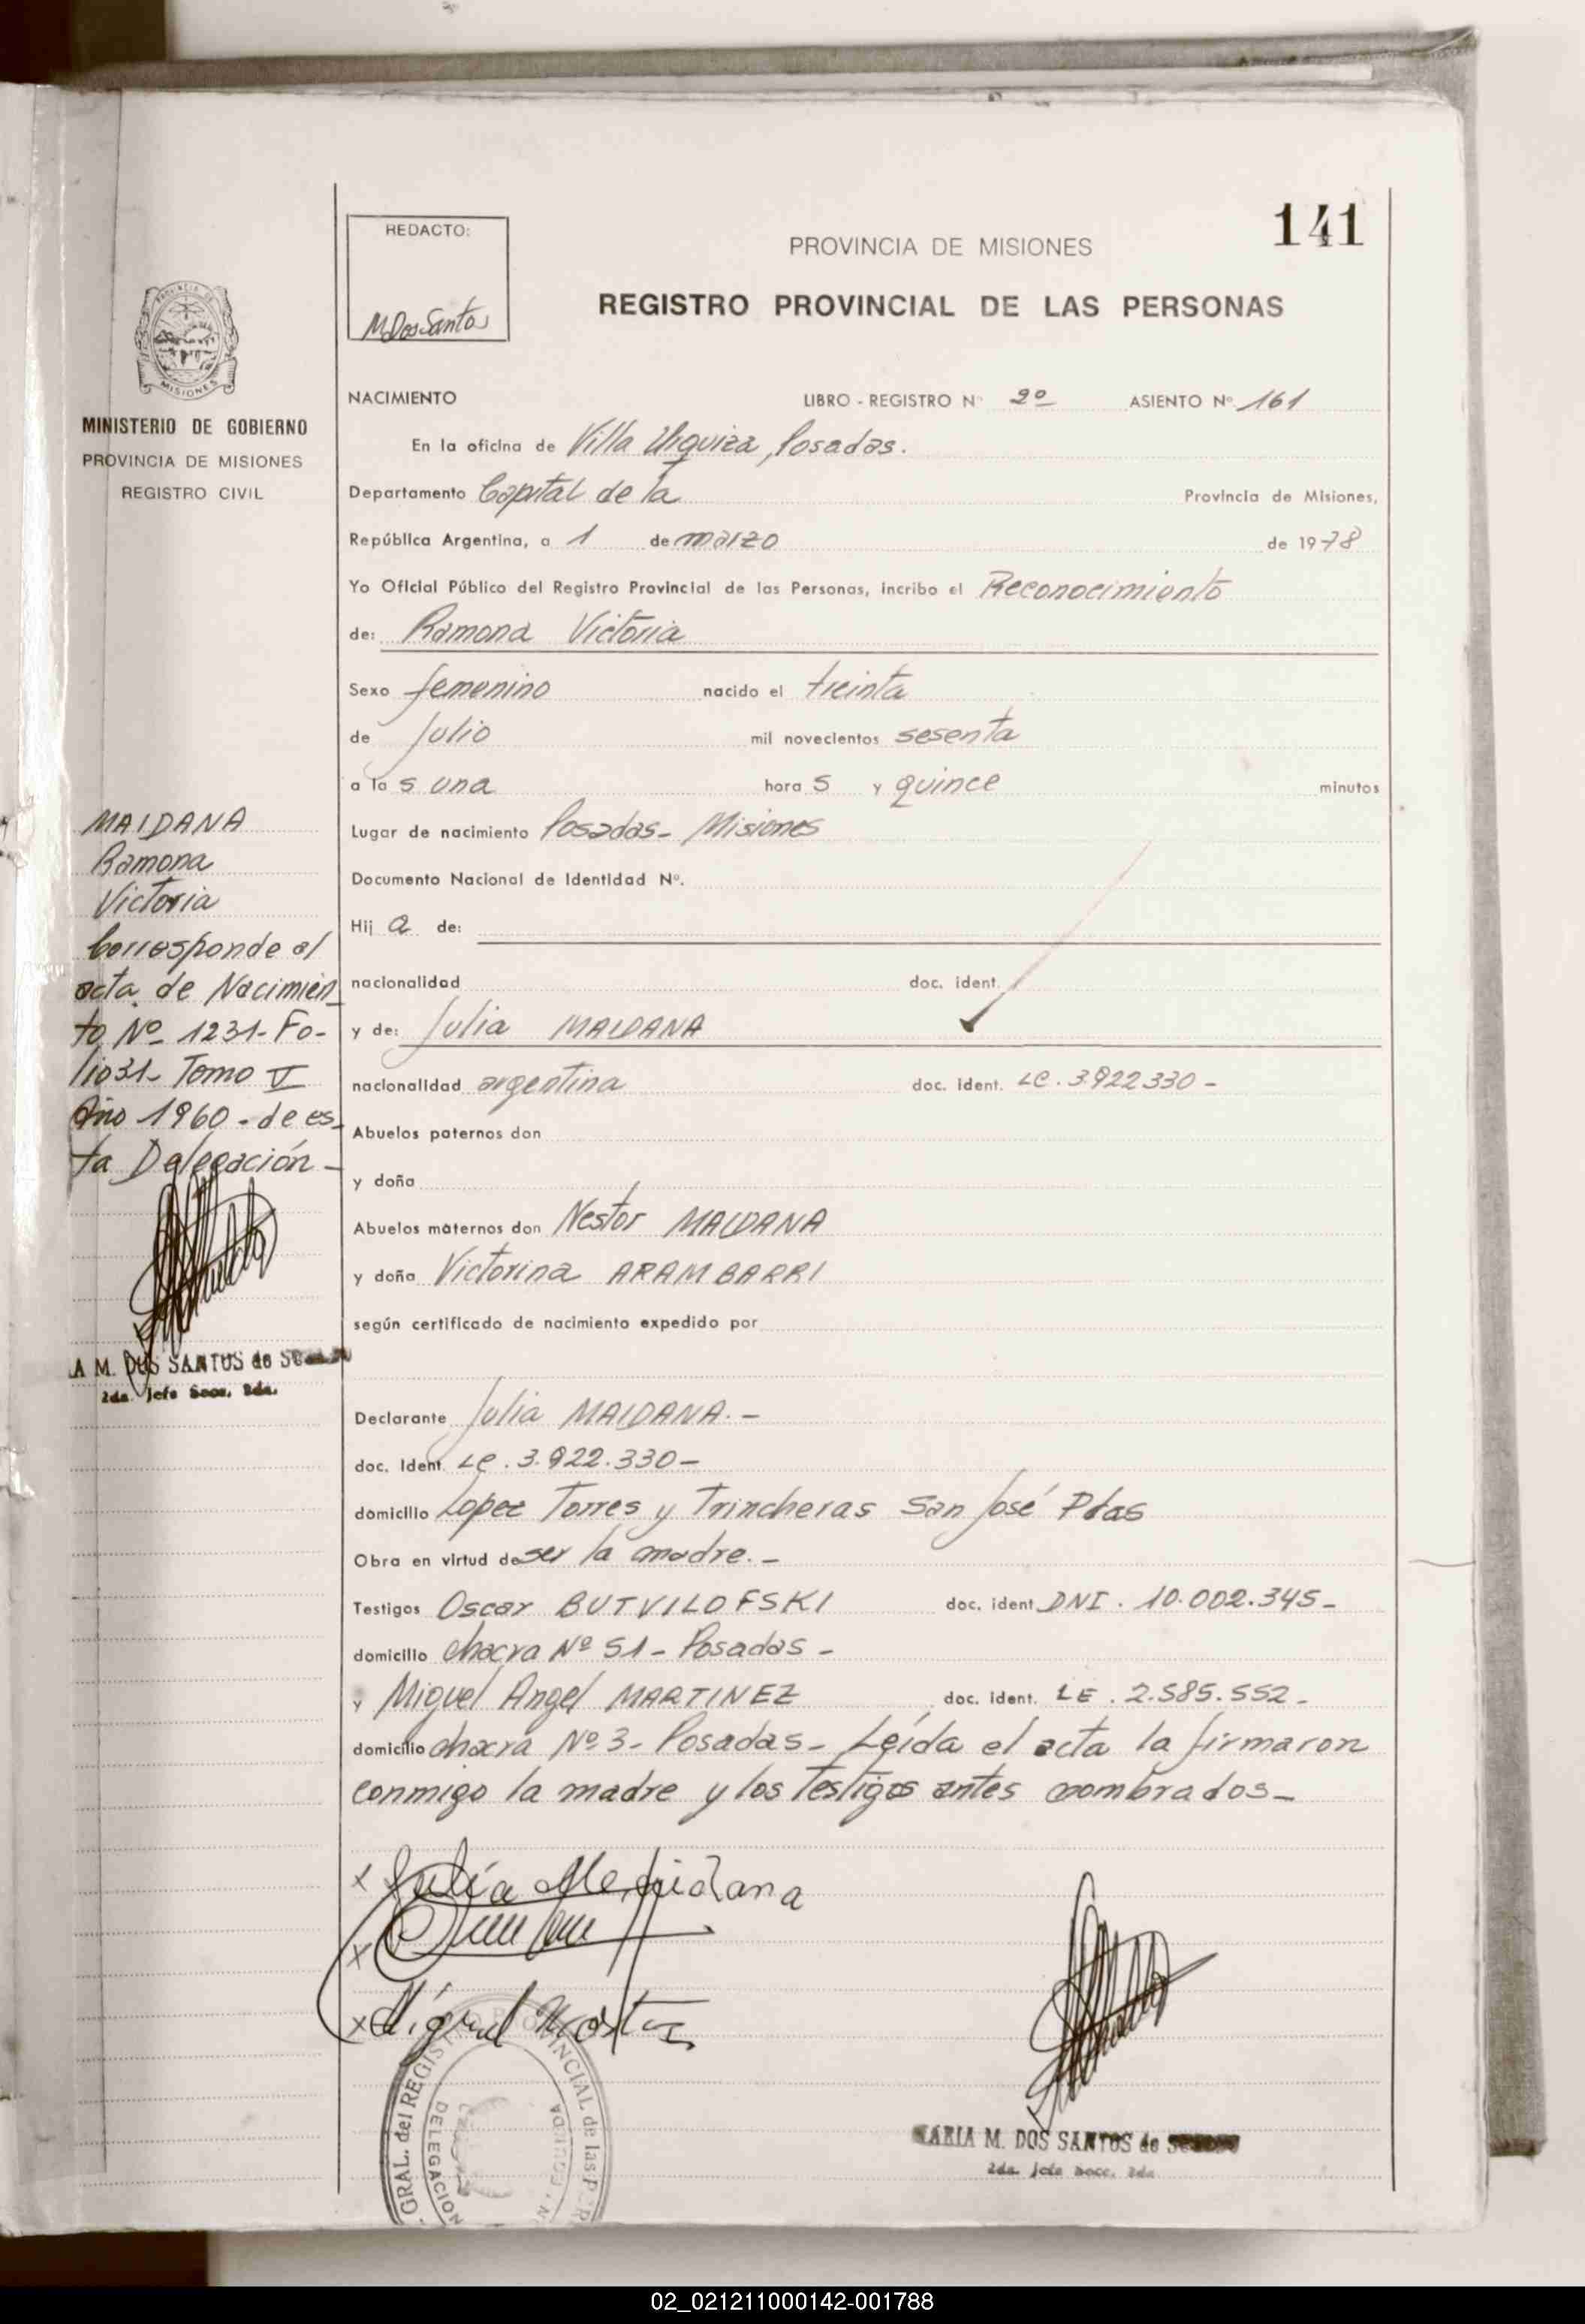 141
REDACTO:
MDosSantos
PROVINCIA DE MISIONES
REGISTRO PROVINCIAL DE LAS PERSONAS
PROVINCIA DE
MISIONES
MINISTERIO DE GOBIERNO
PROVINCIA DE MISIONES
REGISTRO CIVIL
NACIMIENTO LIBRO - REGISTRO Nº 2º ASIENTO Nº 161
En la oficina de Villa Urquiza, Posadas.
Departamento Capital de la Provincia de Misiones,
República Argentina, a 1 de marzo de 1978
Yo Oficial Público del Registro Provincial de las Personas, incribo el Reconocimiento
de: Ramona Victoria
Sexo femenino nacido el treinta
de Julio mil novecientos sesenta
a las una horas y quince minutos
Lugar de nacimiento Posadas- Misiones
Documento Nacional de Identidad Nº.
Hija de:
nacionalidad doc. ident.
y de: Julia MAIDANA
nacionalidad argentina doc. ident. LC. 3922330-
Abuelos paternos don
y doña
Abuelos maternos don Nestor MAIDANA
y doña Victorina ARAMBARRI
según certificado de nacimiento expedido por
MAIDANA
Ramona
Victoria
Corresponde al
acta de Nacimien
to Nº 1231- Fo-
lio 31- Tomo V
Año 1960 - de es-
ta Delegación -
M. DOS SANTOS de
2da. Jefe Secc. 2da.
Declarante Julia MAIDANA. -
doc. Ident. LC. 3.922.330-
domicilio Lopez Torres y Trincheras San José Pdas
Obra en virtud de ser la madre. -
Testigos Oscar BUTVILOFSKI doc. ident. DNI. 10.002.345-
domicilio chacra Nº 51- Posadas -
y Miguel Angel MARTINEZ doc. ident. LE. 2.585.552-
domicilio chacra Nº 3- Posadas- Leída el acta la firmaron
conmigo la madre y los testigos antes nombrados-
x Julia
x
x Miguel
GRAL. del REGISTRO PROVINCIAL de las
DELEGACION
MARIA M. DOS SANTOS de
2da. Jefe Secc. 2da
02_021211000142-001788